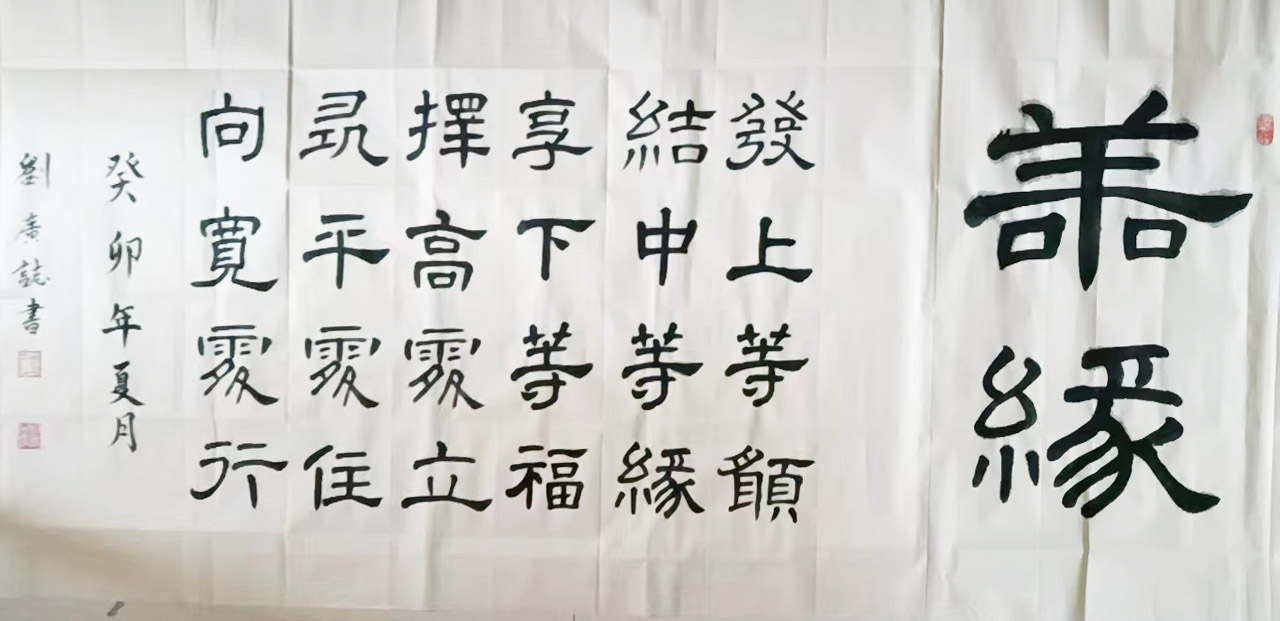 善緣
發上等願
結中等緣
享下等福
擇高處立
尋平處住
向寬處行
癸卯年夏月
劉廣誌書